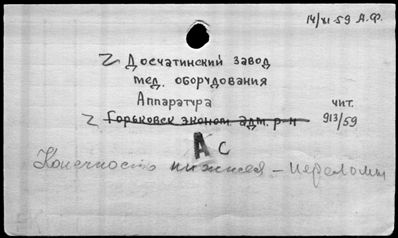 14/XI-59 А.Ф.
Z Досчатинский завод
мед. оборудования
Аппаратура чит.
Z Горьковск эконом. адм. р-н 913/59
А с
Конечность нижняя - переломы